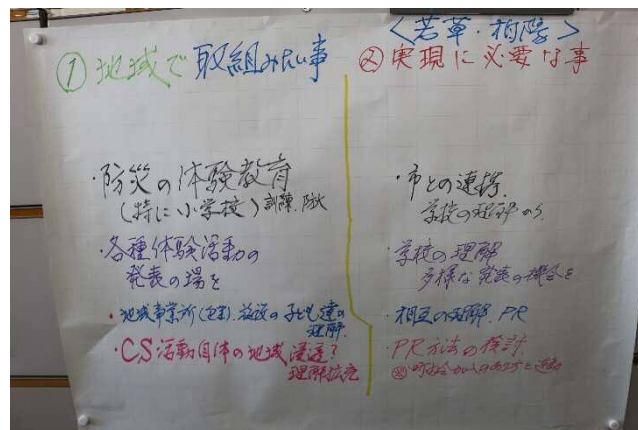 <若草・相陽>
①地域で取組みたい事
②実現に必要な事
・防災の体験教育
(特に小学校)訓練、防火
・各種体験活動の
発表の場を
・地域事業所(企業)、施設の子ども達の
理解
・CS活動自体の地域浸透?
理解拡充
・市との連携、
学校の理解から
・学校の理解
多様な発表の機会を
・相互の理解、PR
・PR方法の検討